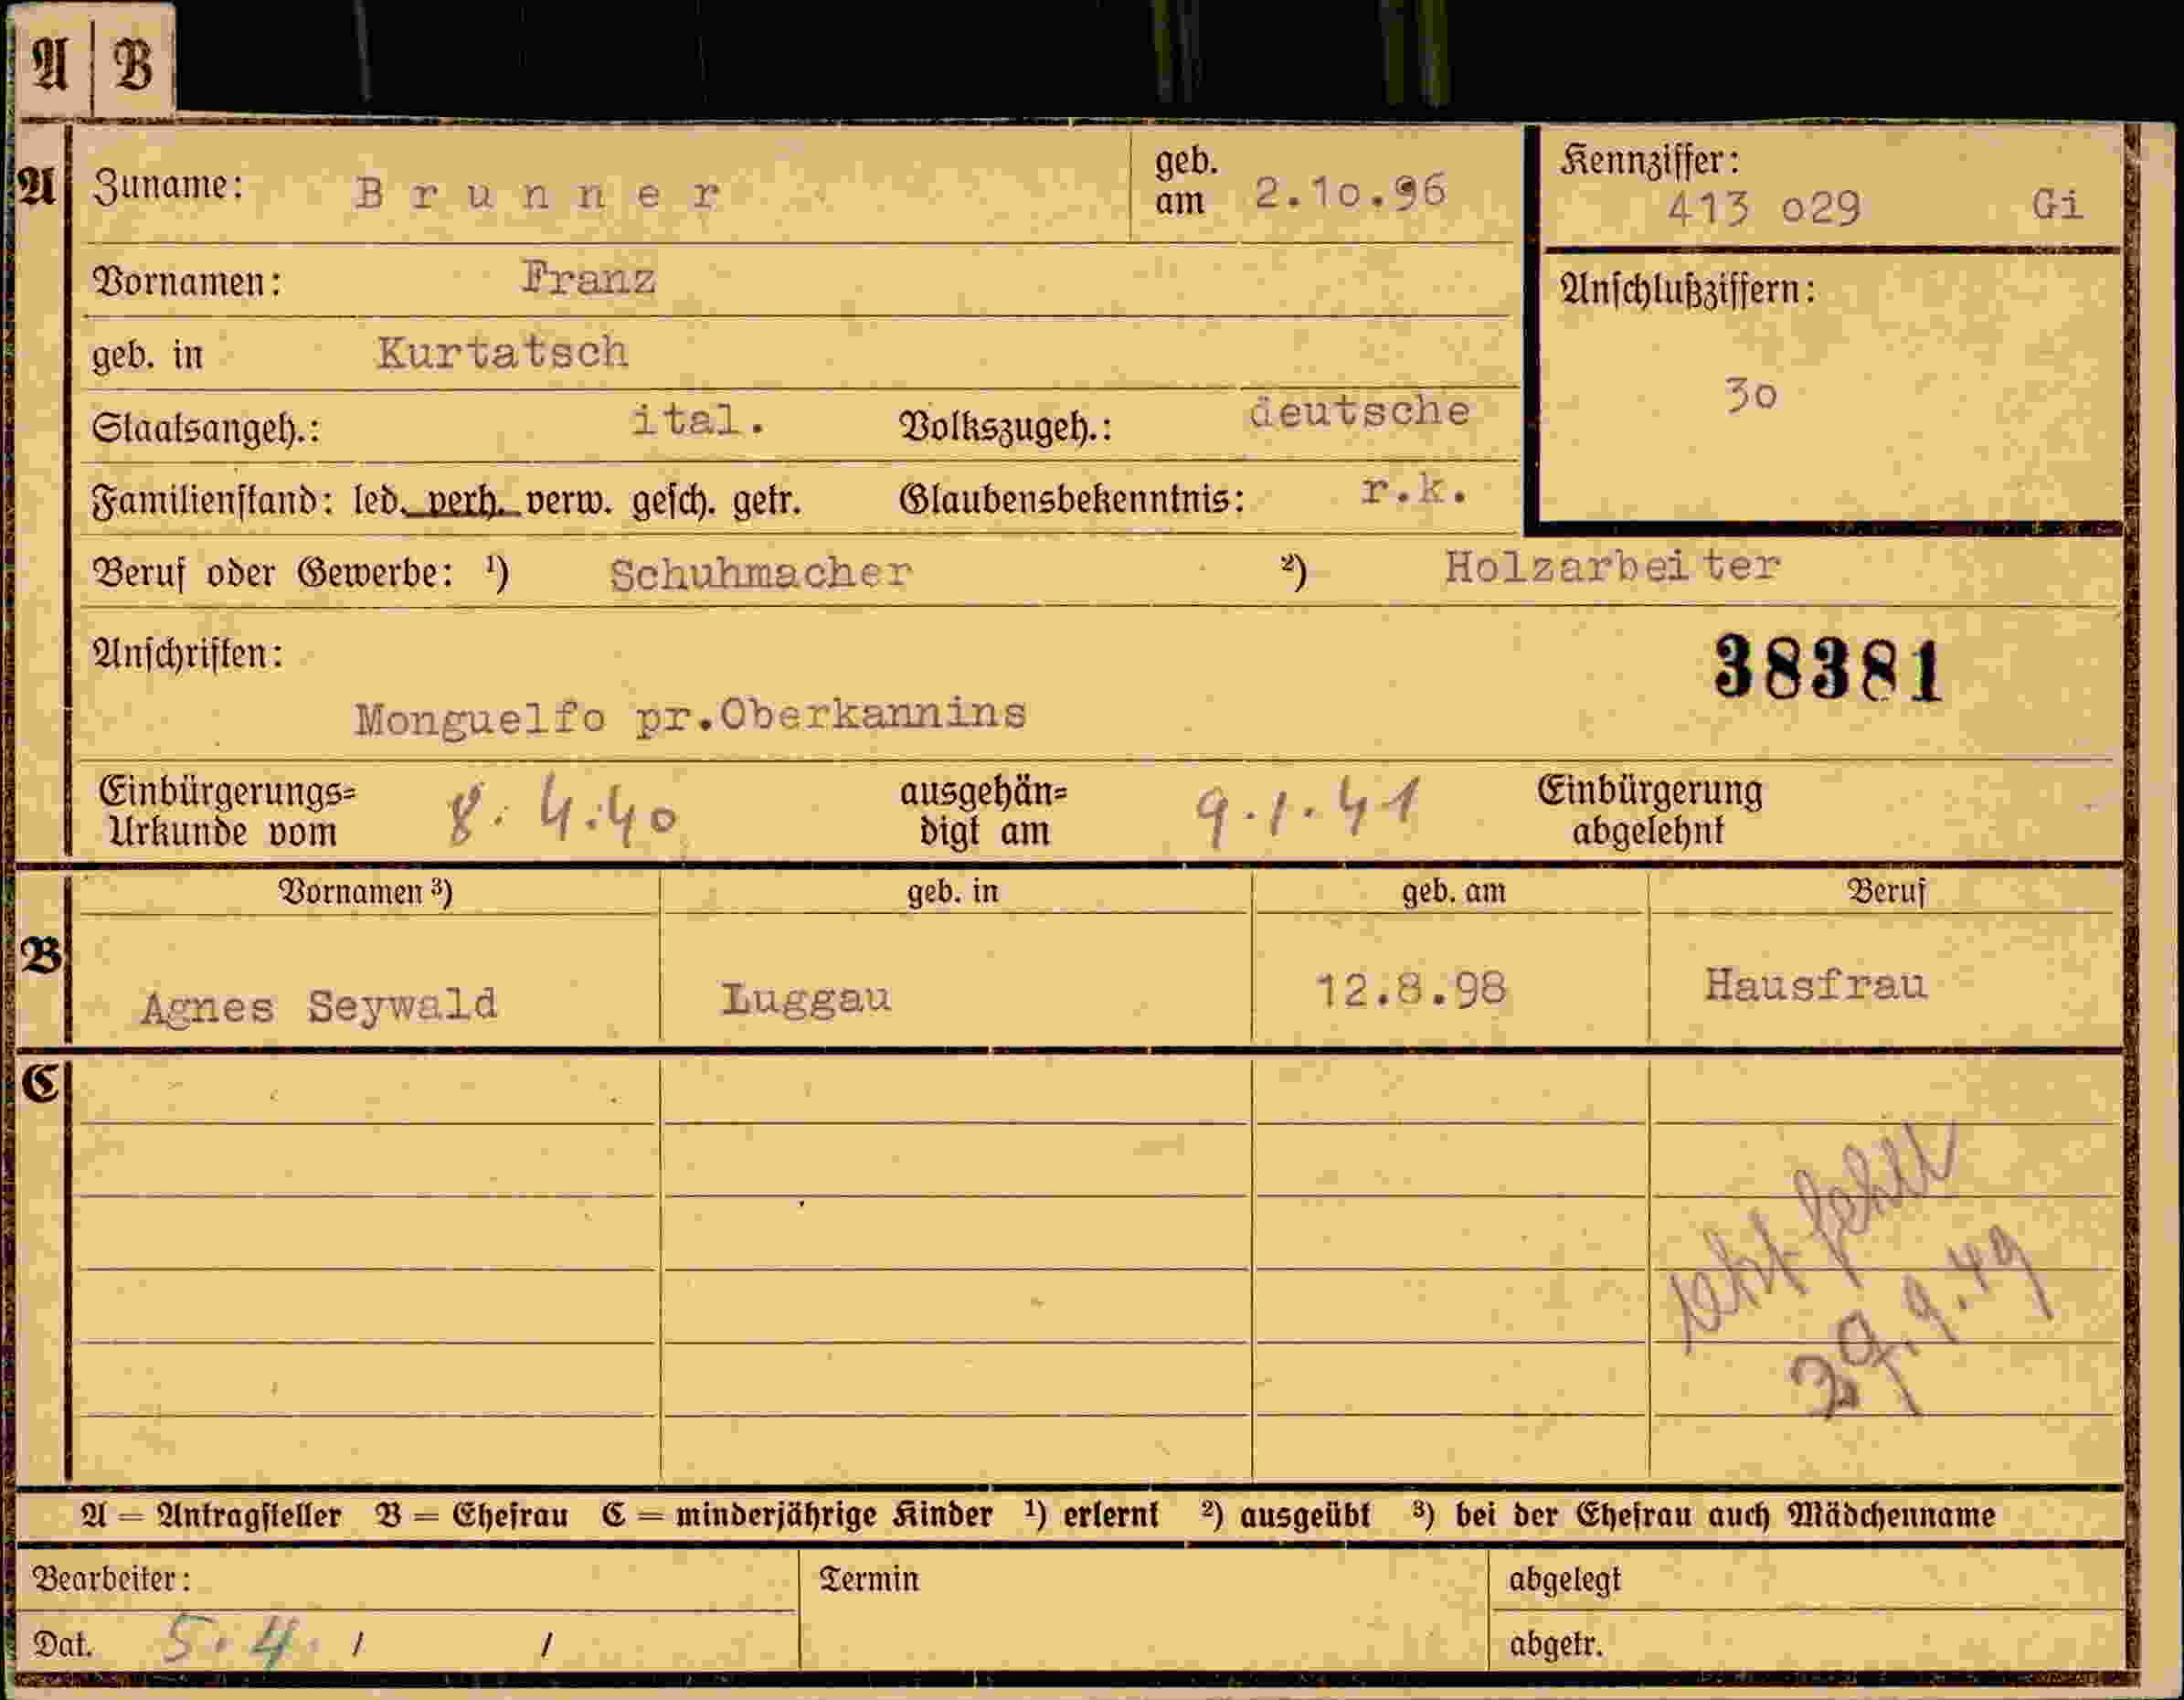 A B
A Zuname: Brunner geb. am 2.1o.96 Kennziffer: 413 o29 Gi
Vornamen: Franz Anschlußziffern:
geb. in Kurtatsch 3o
Staatsangeh.: ital. Volkszugeh.: deutsche
Familienstand: led. verh. verw. gesch. getr. Glaubensbekenntnis: r.k.
Beruf oder Gewerbe: ¹) Schuhmacher ²) Holzarbeiter
Anschriften: 38381
Monguelfo pr.Oberkannins
Einbürgerungs= Urkunde vom 8.4.40 ausgehän= digt am 9.1.41 Einbürgerung abgelehnt
Vornamen ³) geb. in geb. am Beruf
B
Agnes Seywald Luggau 12.8.98 Hausfrau
C
fehlt
29.9.49
A = Antragsteller B = Ehefrau C = minderjährige Kinder ¹) erlernt ²) ausgeübt ³) bei der Ehefrau auch Mädchenname
Bearbeiter: Termin abgelegt
Dat. 5.4. / / abgetr.